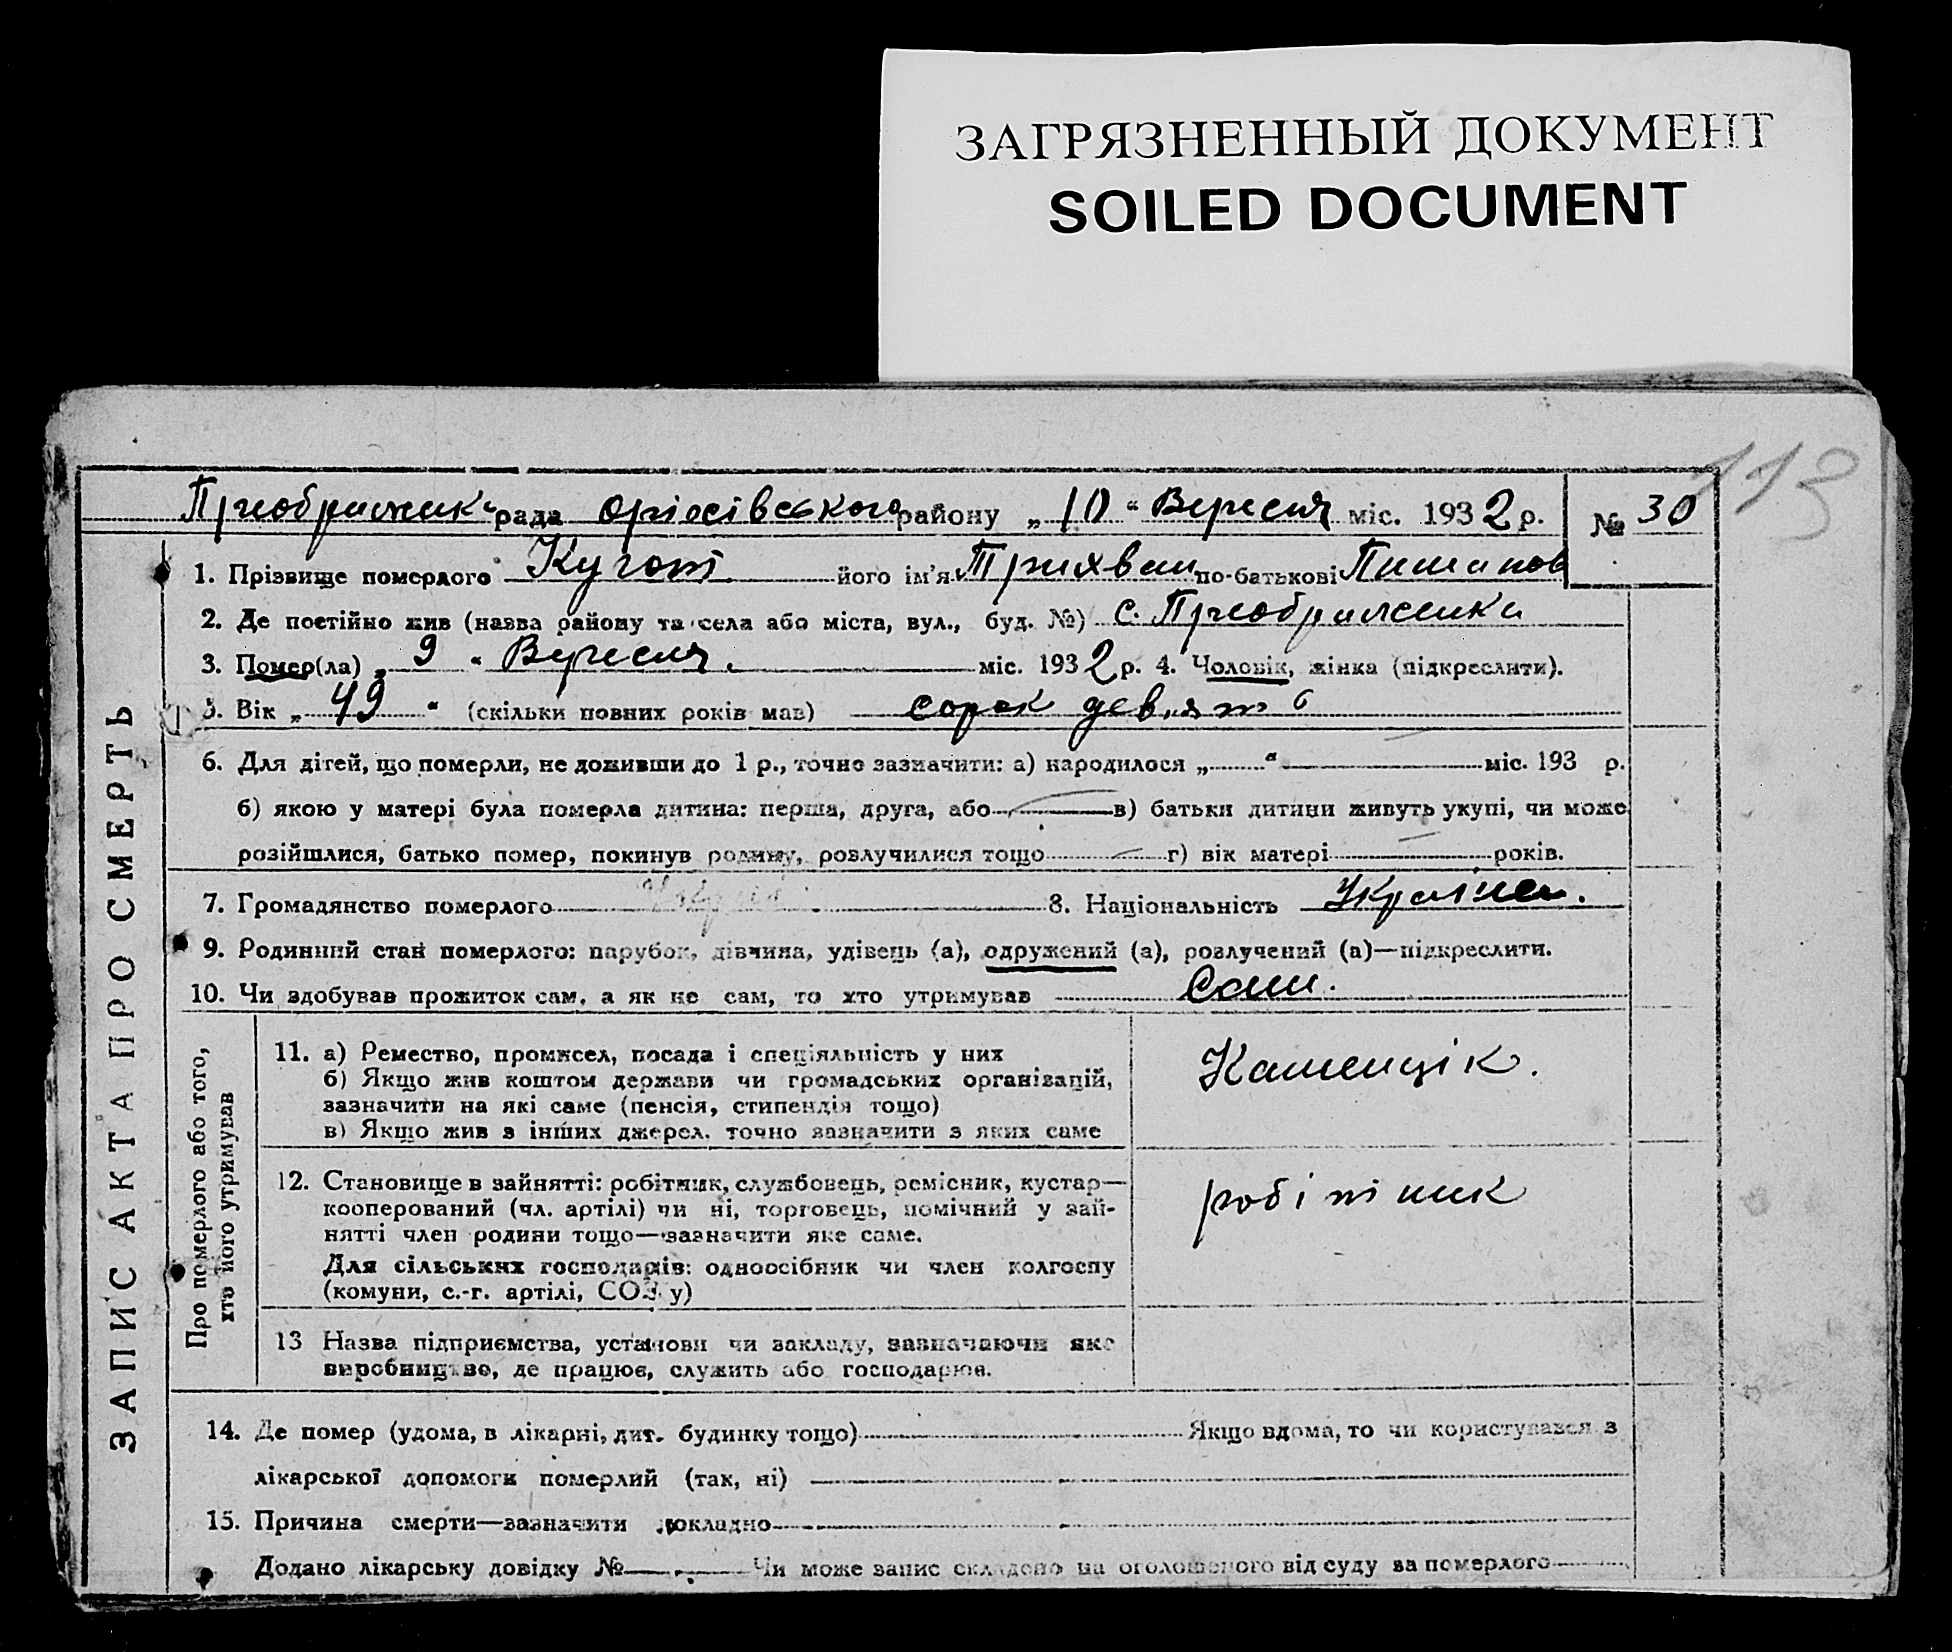 ЗАГРЯЗНЕННЫЙ ДОКУМЕНТ
SOILED DOCUMENT
113
рада Оріхівського району „10“ Вересня міс. 1932 р. № 30
1. Прізвище померлого його ім'я по-батькові
2. Де постійно жив (назва району та села або міста, вул., буд. №) с. Преображенка
3. Помер(ла) „9“ Вересня. міс. 1932 р. 4. Чоловік, жінка (підкреслити).
5. Вік „49“ (скільки повних років мав) сорок девять
6. Для дітей, що померли, не доживши до 1 р., точно зазначити: а) народилося „ “ міс. 193 р.
б) якою у матері була померла дитина: перша, друга, або в) батьки дитини живуть укупі, чи може
розійшлися, батько помер, покинув родину, розлучилися тощо г) вік матері років.
7. Громадянство померлого 8. Національність
9. Родинний стан померлого: парубок, дівчина, удівець (а), одружений (а), розлучений (а)—підкреслити.
10. Чи здобував прожиток сам, а як не сам, то хто утримував Сам.
ЗАПИС АКТА ПРО СМЕРТЬ
Про померлого або того,
хто його утримував
11. а) Ремество, промисел, посада і спеціяльність у них
б) Якщо жив коштом держави чи громадських організацій,
зазначити на які саме (пенсія, стипендія тощо)
в) Якщо жив з інших джерел. точно зазначити з яких саме
Каменщік.
12. Становище в зайнятті: робітник, службовець, ремісник, кустар—
кооперований (чл. артілі) чи ні, торговець, помічний у зай-
нятті член родини тощо—зазначити яке саме.
Для сільських господарів: одноосібник чи член колгоспу
(комуни, с.-г. артілі, СОЗ у)
робітник
13 Назва підприємства, установи чи закладу, зазначаючи яке
виробництво, де працює, служить або господарює.
14. Де помер (удома, в лікарні, дит. будинку тощо) Якщо вдома, то чи користувався з
лікарської допомоги померлий (так, ні)
15. Причина смерти—зазначити докладно
Додано лікарську довідку № Чи може запис складено на оголошеного від суду за померлого